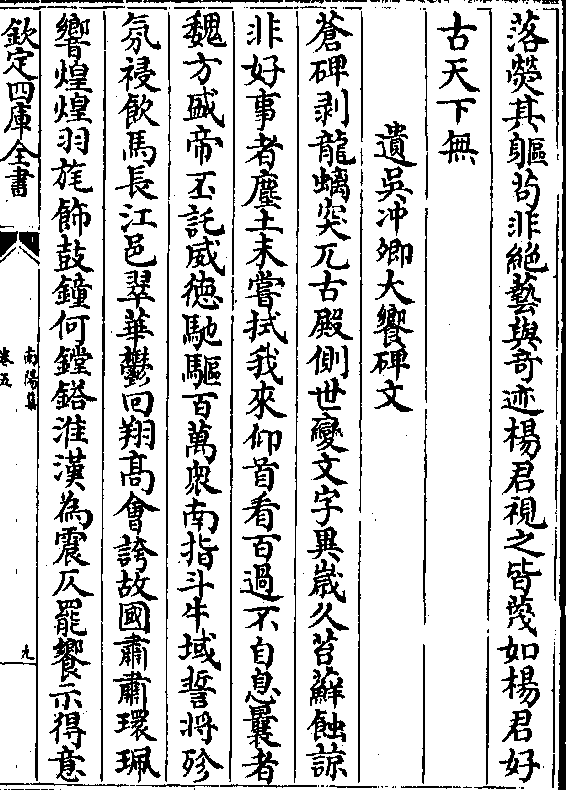 落熒其軀茍非絕藝與奇迹楊君視之皆蔑如楊君好
古天下無
遺吳冲卿大饗碑文
蒼碑剥龍螭突兀古殿側世變文字異嵗久苔蘚蝕諒
非好事者塵土未嘗拭我來仰首看百過不自息曩者
魏方盛帝丕託威徳馳驅百萬衆南指斗牛域誓将殄
氛祲飲馬長江邑翠華鬱回翔髙會誇故國肅肅環珮
響煌煌羽旄飾鼓鐘何鏜鎝淮漢為震仄罷饗示得意
欽定四庫全書
南陽集
卷五
九